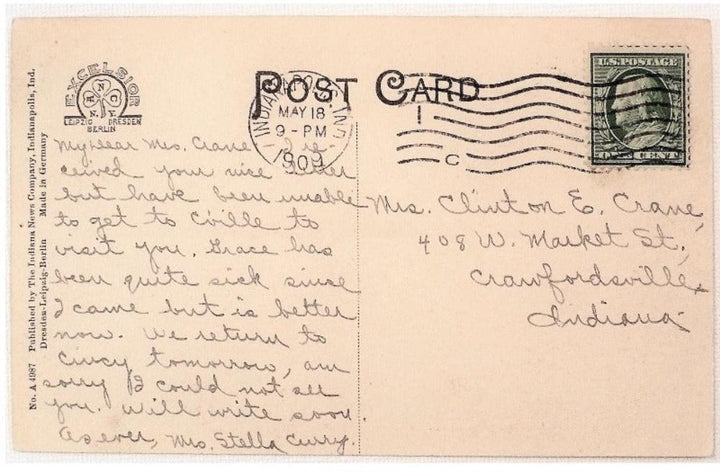 EXCELSIOR
A N C
N.Y.
LEIPZIG DRESDEN
BERLIN
POST CARD
INDIANAPOLIS, IND.
MAY 18
9-PM
1909
1
C
U.S. POSTAGE
ONE CENT
My dear Mrs. Crane I re-
ceived your nice letter
but have been unable
to get to C'ville to
visit you. Grace has
been quite sick since
I came but is better
now. We return to
Cincy tomorrow, am
sorry I could not see
you. Will write soon.
As ever, Mrs. Stella Curry.
Mrs. Clinton E. Crane,
408 W. Market St.,
Crawfordsville,
Indiana
No. A 4987 Published by The Indiana News Company, Indianapolis, Ind.
Dresden-Leipzig-Berlin Made in Germany